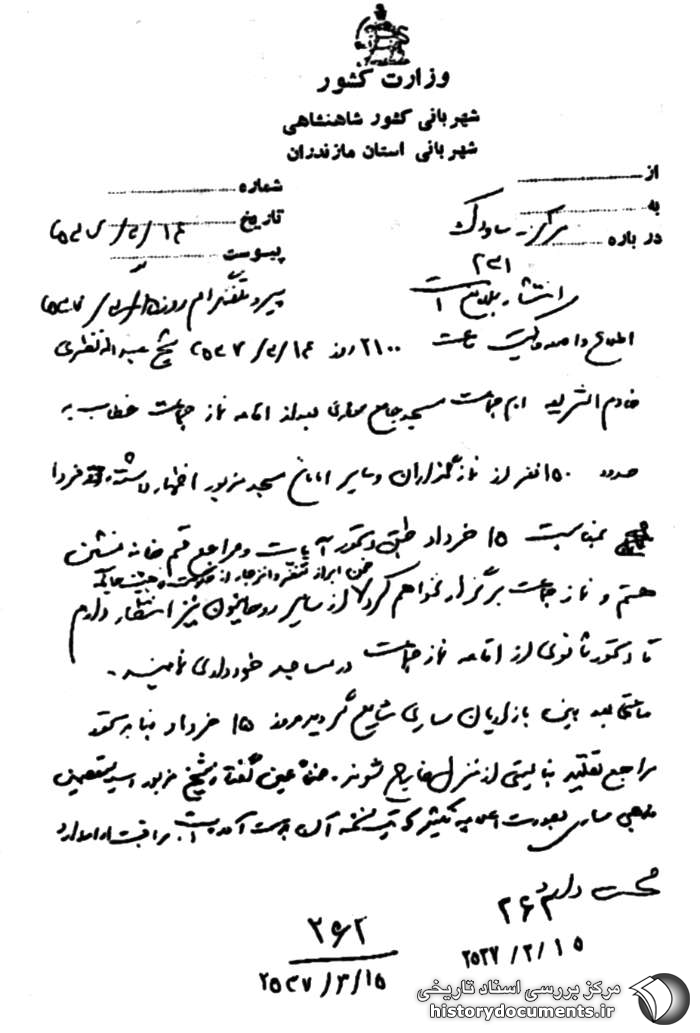 وزارت کشور
شهربانی کشور شاهنشاهی
شهربانی استان مازندران
از
به مرکز - ساواک
درباره ۲۳۱
شماره
تاریخ
پیوست
انتشار اعلامیه است
پیرو تلفنگرام روز
اطلاع واصله حاکیست ساعت ۲۱۰۰ روز ۲۵۳۷/۳/۱۴ شیخ عبداله نظری
خادم الشریعه امام جماعت مسجد جامع ساری بعد از اقامه نماز جماعت خطاب به
حدود ۱۵۰ نفر از نمازگزاران و سایر امامان مسجد مزبور اظهار داشته فردا
بمناسبت ۱۵ خرداد طبق دستور آیات و مراجع قم خانه نشین
ضمن ابراز تنفر و انزجار از حکومت و هیئت حاکمه
هستم و نماز جماعت برگزار نخواهم کرد و از سایر روحانیون نیز انتظار دارم
تا دستور ثانوی از اقامه نماز جماعت در مساجد خودداری نمایند.
ساعتی بعد بین بازاریان ساری شایع گردید روز ۱۵ خرداد بنا به دستور
مراجع تقلید نبایستی از منزل خارج شوند. ضمناً عین گفتار شیخ مزبور متعصبین
مذهبی ساری بصورت اعلامیه تکثیر که یک نسخه آن بدست آمده است. مراقبت ادامه دارد
صحت دارد
۲۶۲
۲۵۳۷/۳/۱۵
۲۶۲
۲۵۳۷/۳/۱۵
مرکز بررسی اسناد تاریخی
historydocuments.ir